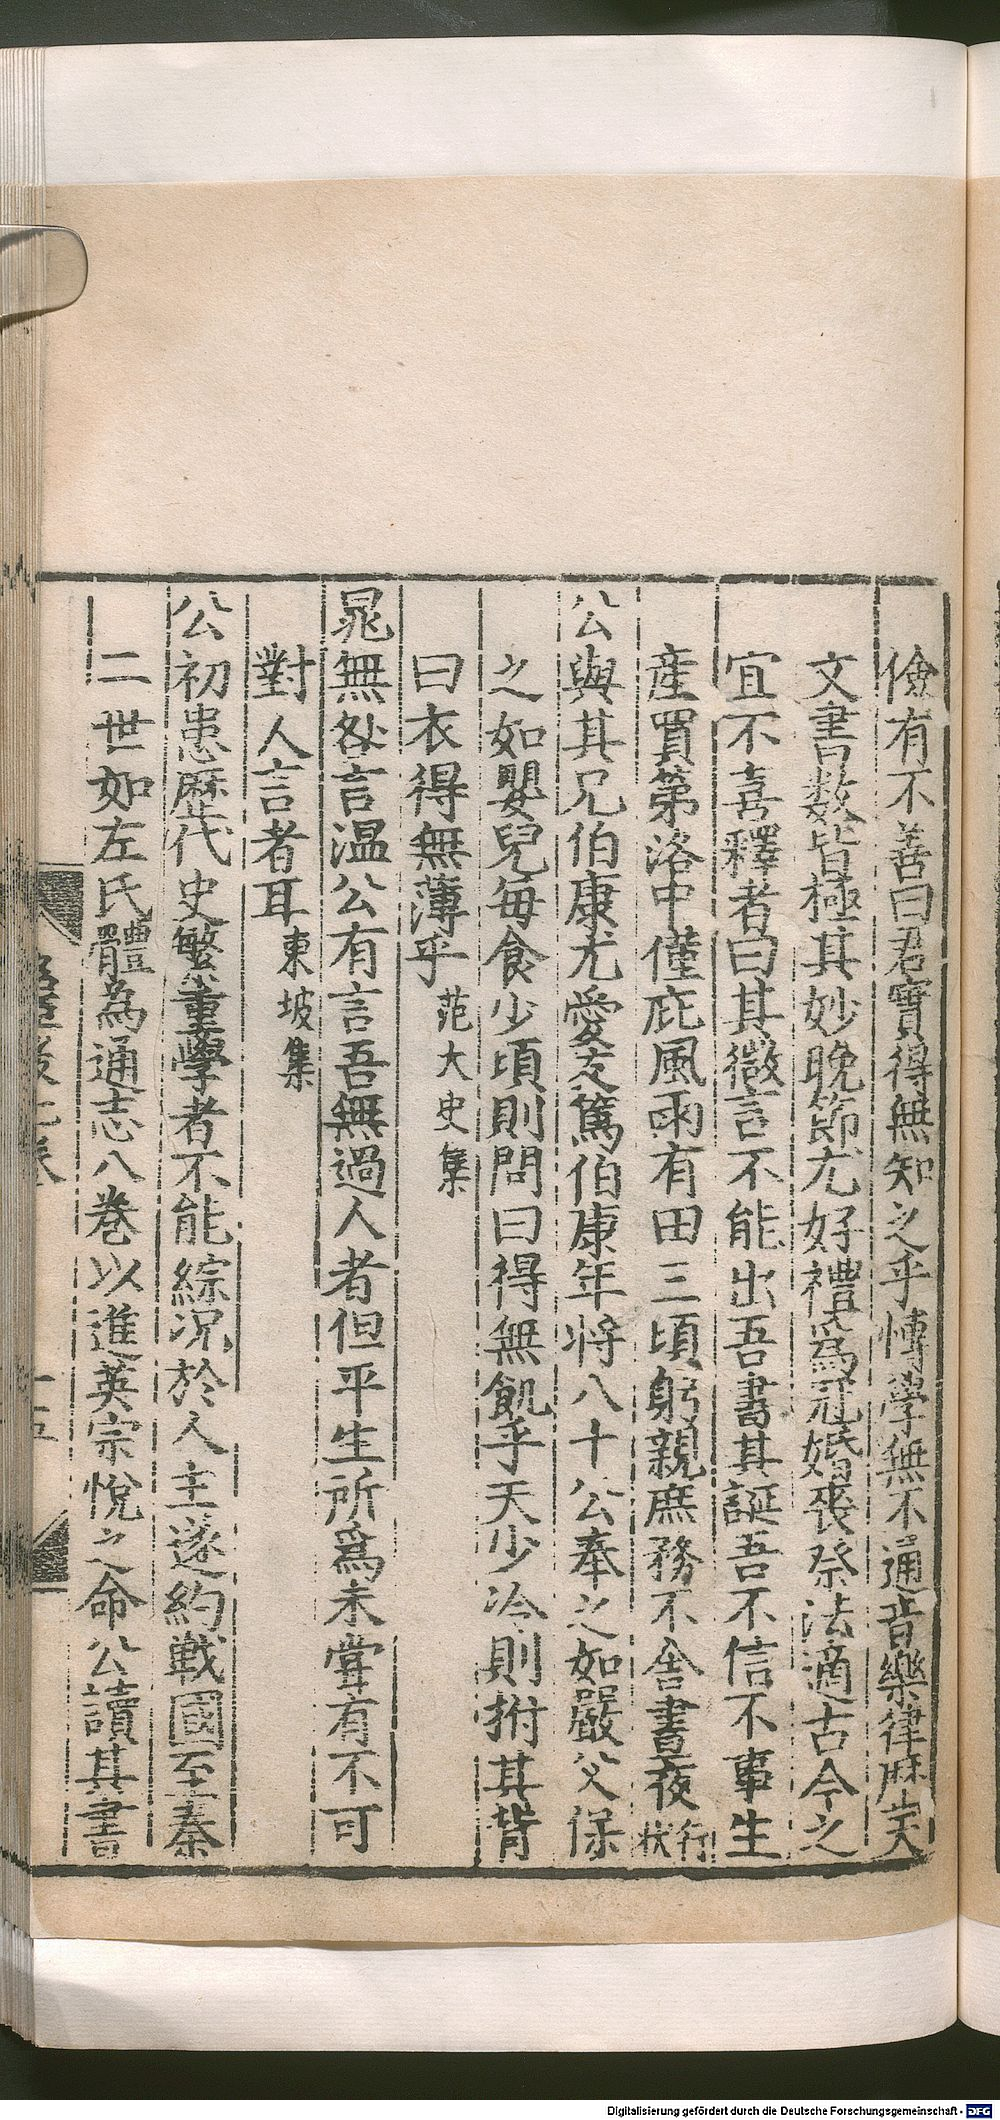 儉有不善曰君實得無知之乎博學無不通音樂律曆天
文書數皆極其妙晚節尤好禮爲冠婚喪祭法適古今之
宜不喜釋老曰其微言不能出吾書其誕吾不信不事生
產買第洛中僅庇風雨有田三頃躬親庶務不舍晝夜行狀
公與其兄伯康尤愛友篤伯康年將八十公奉之如嚴父保
之如嬰兒每食少頃則問曰得無飢乎天少冷則拊其背
曰衣得無薄乎范太史集
晁無咎言温公有言吾無過人者但平生所爲未嘗有不可
對人言者耳東坡集
公初患歷代史繁重學者不能綜况於人主遂約戰國至秦
二世如左氏體為通志八卷以進英宗悅之命公讀其書
十五
Digitalisierung gefördert durch die Deutsche Forschungsgemeinschaft - DFG